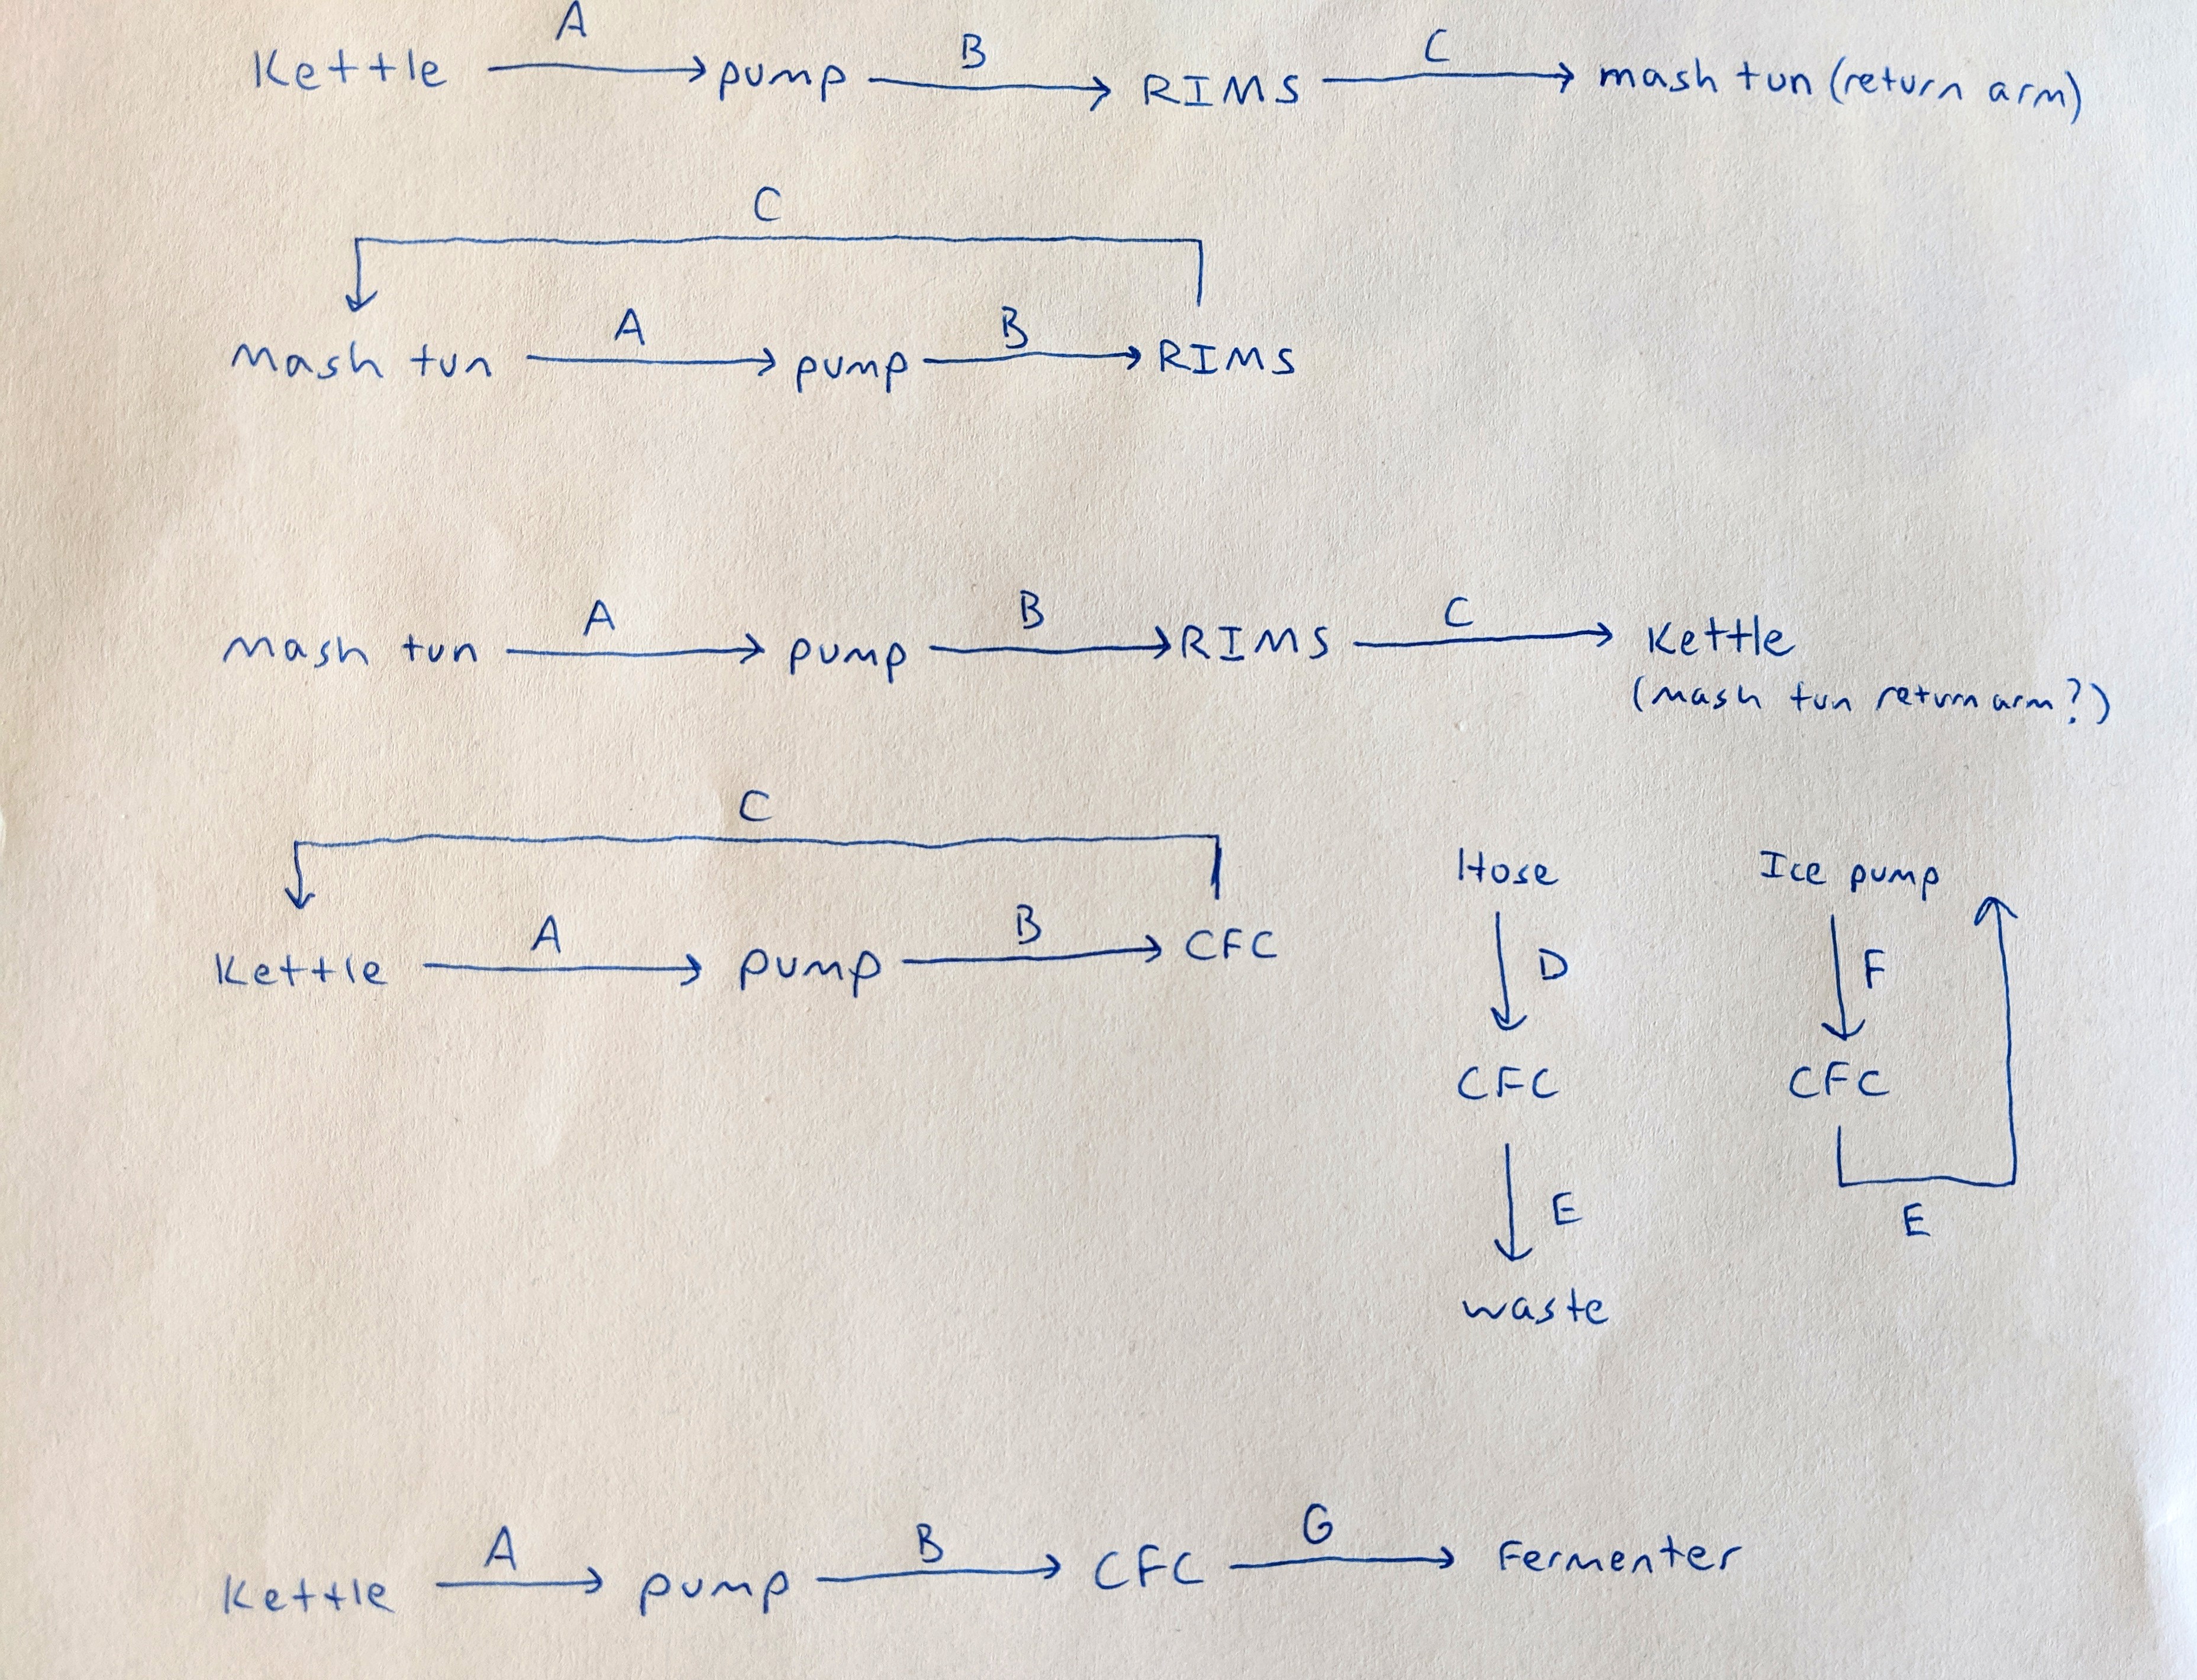 A B C
Kettle pump RIMS mash tun (return arm)
C
A B
Mash tun pump RIMS
A B C
mash tun pump RIMS Kettle
(mash tun return arm?)
C
A B
Kettle pump CFC
Hose
D
CFC
E
waste
Ice pump
F
CFC
E
A B G
Kettle pump CFC Fermenter